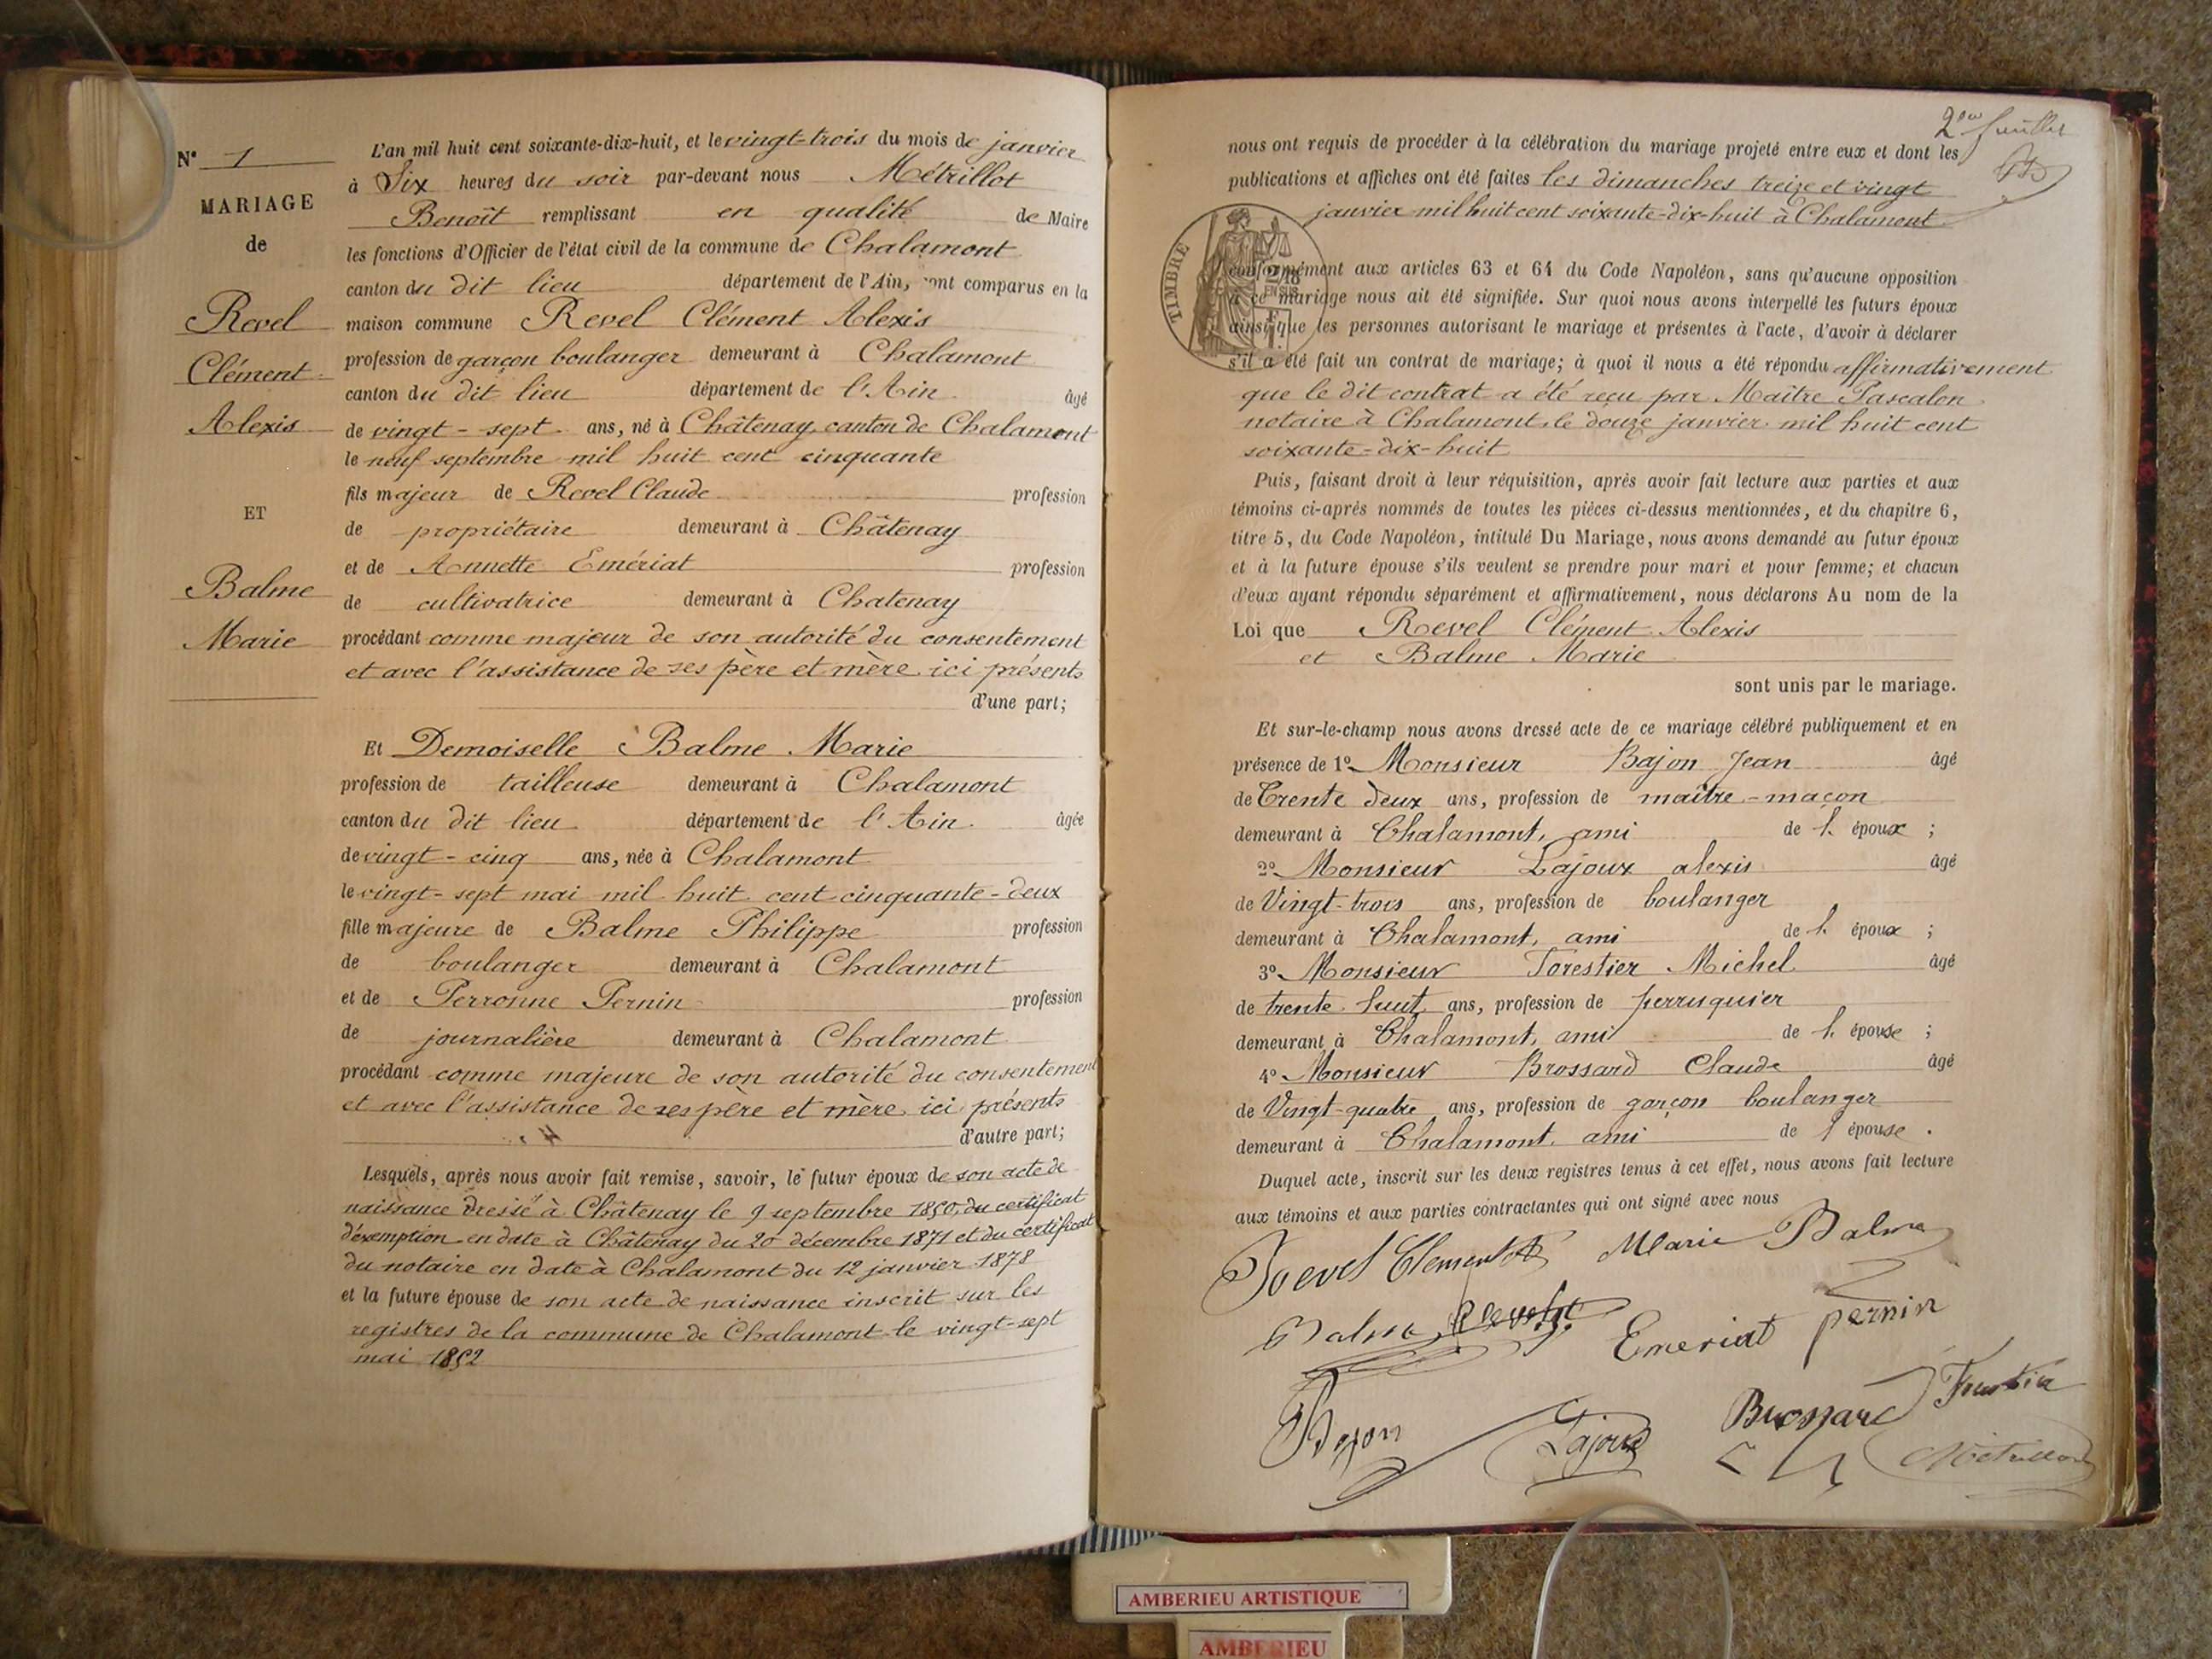 N° 1
MARIAGE
de
Revel
Clément
Alexis
ET
Balme
Marie
L'an mil huit cent soixante-dix-huit, et le vingt-trois du mois de janvier
à Six heures du soir par-devant nous Métrillot
Benoît remplissant en qualité de Maire
les fonctions d'Officier de l'état civil de la commune de Chalamont
canton du dit lieu département de l'Ain, sont comparus en la
maison commune Revel Clément Alexis
profession de garçon boulanger demeurant à Chalamont
canton du dit lieu département de l'Ain âgé
de vingt-sept ans, né à Châtenay, canton de Chalamont
le neuf septembre mil huit cent cinquante
fils majeur de Revel Claude profession
de propriétaire demeurant à Châtenay
et de Annette Emériat profession
de cultivatrice demeurant à Chatenay
procédant comme majeur de son autorité du consentement
et avec l'assistance de ses père et mère ici présents
d'une part;
Et Demoiselle Balme Marie
profession de tailleuse demeurant à Chalamont
canton du dit lieu département de l'Ain. âgée
de vingt-cinq ans, née à Chalamont
le vingt-sept mai mil huit cent cinquante-deux
fille majeure de Balme Philippe profession
de boulanger demeurant à Chalamont
et de Perronne Pernin profession
de journalière demeurant à Chalamont
procédant comme majeure de son autorité du consentement
et avec l'assistance de ses père et mère ici présents
d'autre part;
Lesquels, après nous avoir fait remise, savoir, le futur époux de son acte de
naissance dressé à Châtenay le 9 septembre 1850, du certificat
d'exemption en date à Châtenay du 20 décembre 1871 et du certificat
du notaire en date à Chalamont du 12 janvier 1878
et la future épouse de son acte de naissance inscrit sur les
registres de la commune de Chalamont le vingt-sept
mai 1852
2me feuillet
nous ont requis de procéder à la célébration du mariage projeté entre eux et dont les
publications et affiches ont été faites les dimanches treize et vingt
janvier mil huit cent soixante-dix-huit à Chalamont
TIMBRE
conformément aux articles 63 et 64 du Code Napoléon, sans qu'aucune opposition
à ce mariage nous ait été signifiée. Sur quoi nous avons interpellé les futurs époux
ainsi que les personnes autorisant le mariage et présentes à l'acte, d'avoir à déclarer
s'il a été fait un contrat de mariage; à quoi il nous a été répondu affirmativement
que le dit contrat a été reçu par Maître Pascalon
notaire à Chalamont, le douze janvier mil huit cent
soixante-dix-huit
Puis, faisant droit à leur réquisition, après avoir fait lecture aux parties et aux
témoins ci-après nommés de toutes les pièces ci-dessus mentionnées, et du chapitre 6,
titre 5, du Code Napoléon, intitulé Du Mariage, nous avons demandé au futur époux
et à la future épouse s'ils veulent se prendre pour mari et pour femme; et chacun
d'eux ayant répondu séparément et affirmativement, nous déclarons Au nom de la
Loi que Revel Clément Alexis
et Balme Marie
sont unis par le mariage.
Et sur-le-champ nous avons dressé acte de ce mariage célébré publiquement et en
présence de 1° Monsieur Bajon Jean âgé
de Trente deux ans, profession de maître-maçon
demeurant à Chalamont, ami de l. époux ;
2° Monsieur Lajoux alexis âgé
de Vingt-trois ans, profession de boulanger
demeurant à Chalamont, ami de l. époux ;
3° Monsieur Forestier Michel âgé
de trente huit ans, profession de perruquier
demeurant à Chalamont, ami de l. épouse ;
4° Monsieur Brossard Claude âgé
de Vingt-quatre ans, profession de garçon boulanger
demeurant à Chalamont, ami de l épouse .
Duquel acte, inscrit sur les deux registres tenus à cet effet, nous avons fait lecture
aux témoins et aux parties contractantes qui ont signé avec nous
Revel Clement Marie Balme
Balme Revel Emeriat pernin
Bajon Lajoux Brossard Forestier
Métrillot
AMBERIEU ARTISTIQUE
AMBERIEU